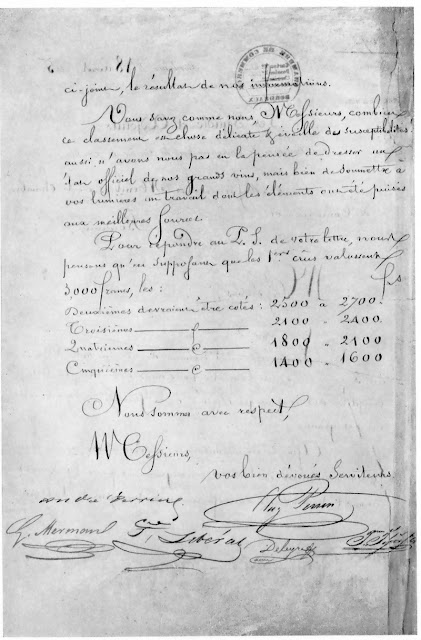 CHAMBRE DE COMMERCE BORDEAUX
ci-joint, le résultat de nos informations.
Vous savez comme nous, Messieurs, combien
ce classement est chose délicate & éveille des susceptibilités;
aussi n'avons nous pas eu la pensée de dresser un
état officiel de nos grands vins, mais bien de soumettre à
vos lumières un travail dont les éléments ont été puisés
aux meilleures sources.
Pour répondre au P. S. de votre lettre, nous
pensons qu'en supposant que les 1ers crus valussent
3,000 francs, les : fs
Deuxièmes devraient être cotés : 2500 à 2700.
Troisièmes 2100 - 2400
Quatrièmes 1800 - 2100
Cinquièmes 1400 - 1600
Nous sommes avec respect,
Messieurs,
vos bien dévoués Serviteurs
G. Mermann